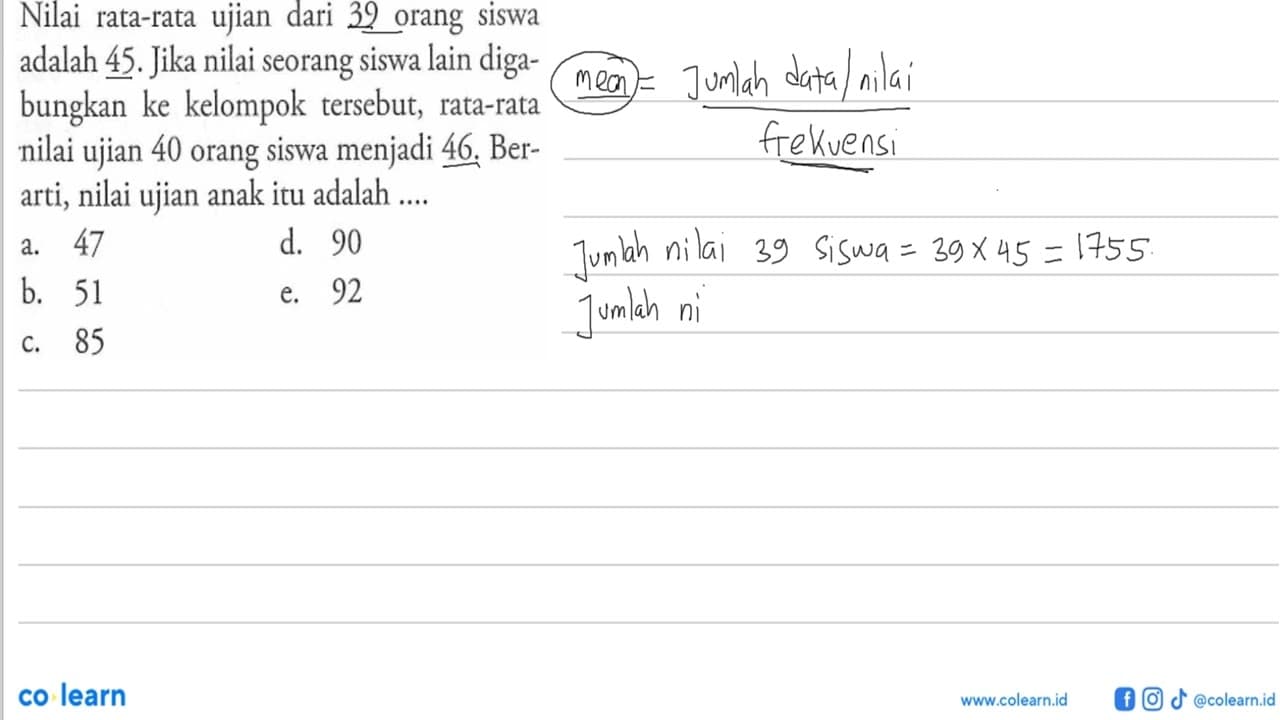 Nilai rata-rata ujian dari 39 orang siswa
adalah 45. Jika nilai seorang siswa lain diga-
bungkan ke kelompok tersebut, rata-rata
nilai ujian 40 orang siswa menjadi 46. Ber-
arti, nilai ujian anak itu adalah ....
a. 47 d. 90
b. 51 e. 92
c. 85
mean = Jumlah data/nilai
frekuensi
Jumlah nilai 39 siswa = 39 x 45 = 1755.
Jumlah ni
co learn
www.colearn.id @colearn.id